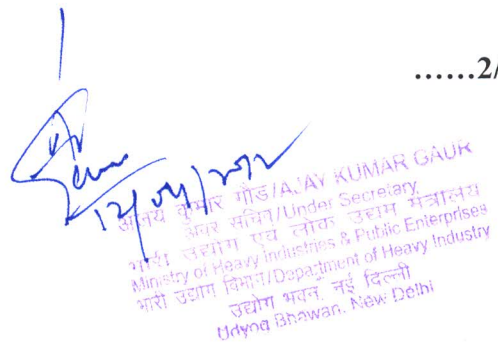 ......2/
अजय कुमार गौड/AJAY KUMAR GAUR
अवर सचिव/Under Secretary
भारी उद्योग एवं लोक उद्यम मंत्रालय
Ministry of Heavy Industries & Public Enterprises
भारी उद्योग विभाग/Department of Heavy Industry
उद्योग भवन, नई दिल्ली
Udyog Bhawan, New Delhi